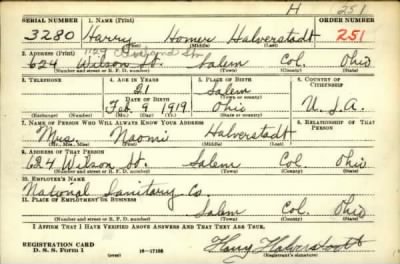 H (251)
SERIAL NUMBER 1. NAME (Print) ORDER NUMBER
3280 Harry Homer Halverstadt 251
(First) (Middle) (Last)
2. ADDRESS (Print)
624 Wilson St. Salem Col. Ohio
(Number and street or R. F. D. number) (Town) (County) (State)
3. TELEPHONE 4. AGE IN YEARS 5. PLACE OF BIRTH 6. COUNTRY OF CITIZENSHIP
21 Salem
DATE OF BIRTH (Town or county)
Feb. 9 1919 Ohio U.S.A.
(Exchange) (Number) (Mo.) (Day) (Yr.) (State or country)
7. NAME OF PERSON WHO WILL ALWAYS KNOW YOUR ADDRESS 8. RELATIONSHIP OF THAT PERSON
Mrs. Naomi Halverstadt
(Mr., Mrs., Miss) (First) (Middle) (Last)
9. ADDRESS OF THAT PERSON
624 Wilson St. Salem Col. Ohio
(Number and street or R. F. D. number) (Town) (County) (State)
10. EMPLOYER'S NAME
National Sanitary Co.
11. PLACE OF EMPLOYMENT OR BUSINESS
Salem Col. Ohio
(Number and street or R. F. D. number) (Town) (County) (State)
I AFFIRM THAT I HAVE VERIFIED ABOVE ANSWERS AND THAT THEY ARE TRUE.
REGISTRATION CARD
D. S. S. Form 1 (over) Harry Halverstadt
(Registrant's signature)